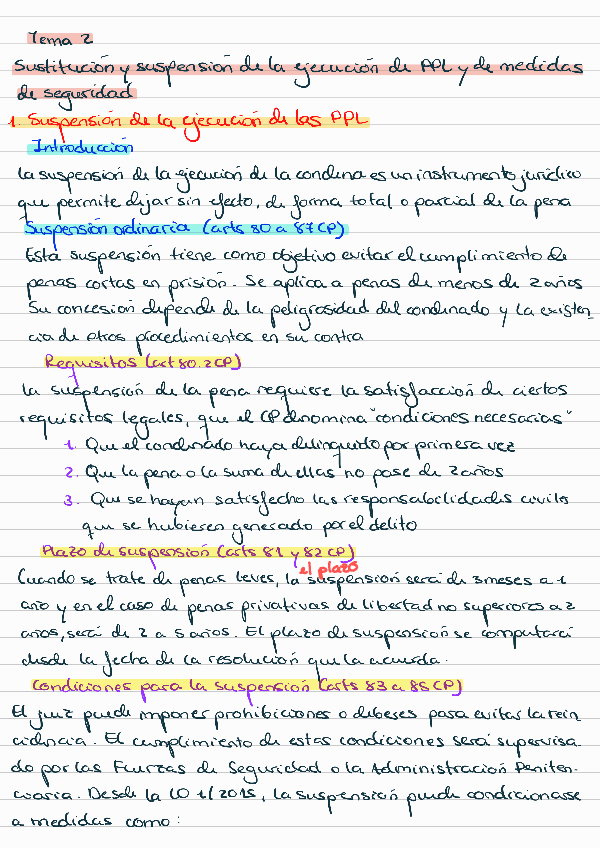 Tema 2
Sustitución y suspensión de la ejecución de PPL y de medidas
de seguridad
1. Suspensión de la ejecución de las PPL
Introducción
La suspensión de la ejecución de la condena es un instrumento jurídico
que permite dejar sin efecto, de forma total o parcial de la pena
Suspensión ordinaria (arts 80 a 87 CP)
Esta suspensión tiene como objetivo evitar el cumplimiento de
penas cortas en prisión. Se aplica a penas de menos de 2 años
Su concesión depende de la peligrosidad del condenado y la existen
cia de otros procedimientos en su contra
Requisitos (art 80.2 CP)
La suspensión de la pena requiere la satisfacción de ciertos
requisitos legales, que el CP denomina "condiciones necesarias"
1. Que el condenado haya delinquido por primera vez
2. Que la pena o la suma de ellas no pase de 2 años
3. Que se hayan satisfecho las responsabilidades civiles
que se hubieren generado por el delito
Plazo de suspensión (arts 81 y 82 CP)
el plazo
Cuando se trate de penas leves, la suspensión será de 3 meses a 1
año y en el caso de penas privativas de libertad no superiores a 2
años, será de 2 a 5 años. El plazo de suspensión se computará
desde la fecha de la resolución que la acuerda.
Condiciones para la suspensión (arts 83 a 85 CP)
El juez puede imponer prohibiciones o deberes para evitar la rein
cidencia. El cumplimiento de estas condiciones será supervisa
do por las Fuerzas de Seguridad o la Administración Peniten-
ciaria. Desde la LO 1/2015, la suspensión puede condicionarse
a medidas como: